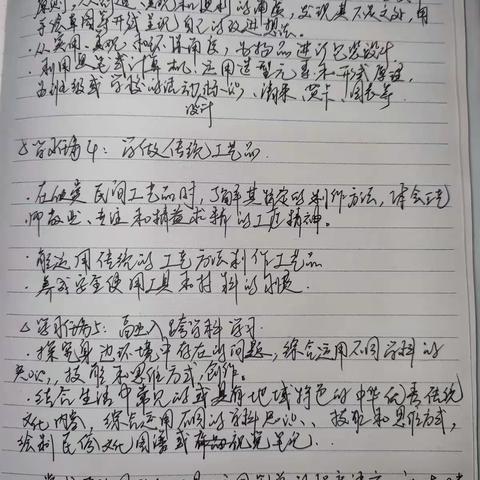 原则，从创造、表现和便利的角度，发现其不足之处，用
手绘草图等形式呈现自己的改进想法。
·从实用、美观、和环保角度，为物品进行包装设计
·利用画笔或计算机，运用造型元素和形式原理，
为班级或学校的活动、请柬、贺卡、图表等
设计
△学习任务4：学做传统工艺品
·在欣赏民间工艺品时，了解其特定的制作方法，体会工艺
师敬业、专注和精益求新的工匠精神。
·能运用传统的工艺方法制作工艺品
·养成安全使用工具和材料的习惯
△学习任务5：融入跨学科学习
·探究身边环境中存在的问题，综合运用不同学科的
知识、技能和思维方式，创作。
·结合生活中常见的或具有地域特色的中华优秀传统
文化内容，综合运用不同的学科知识、技能和思维方式，
绘制民俗文化图谱或视觉笔记。